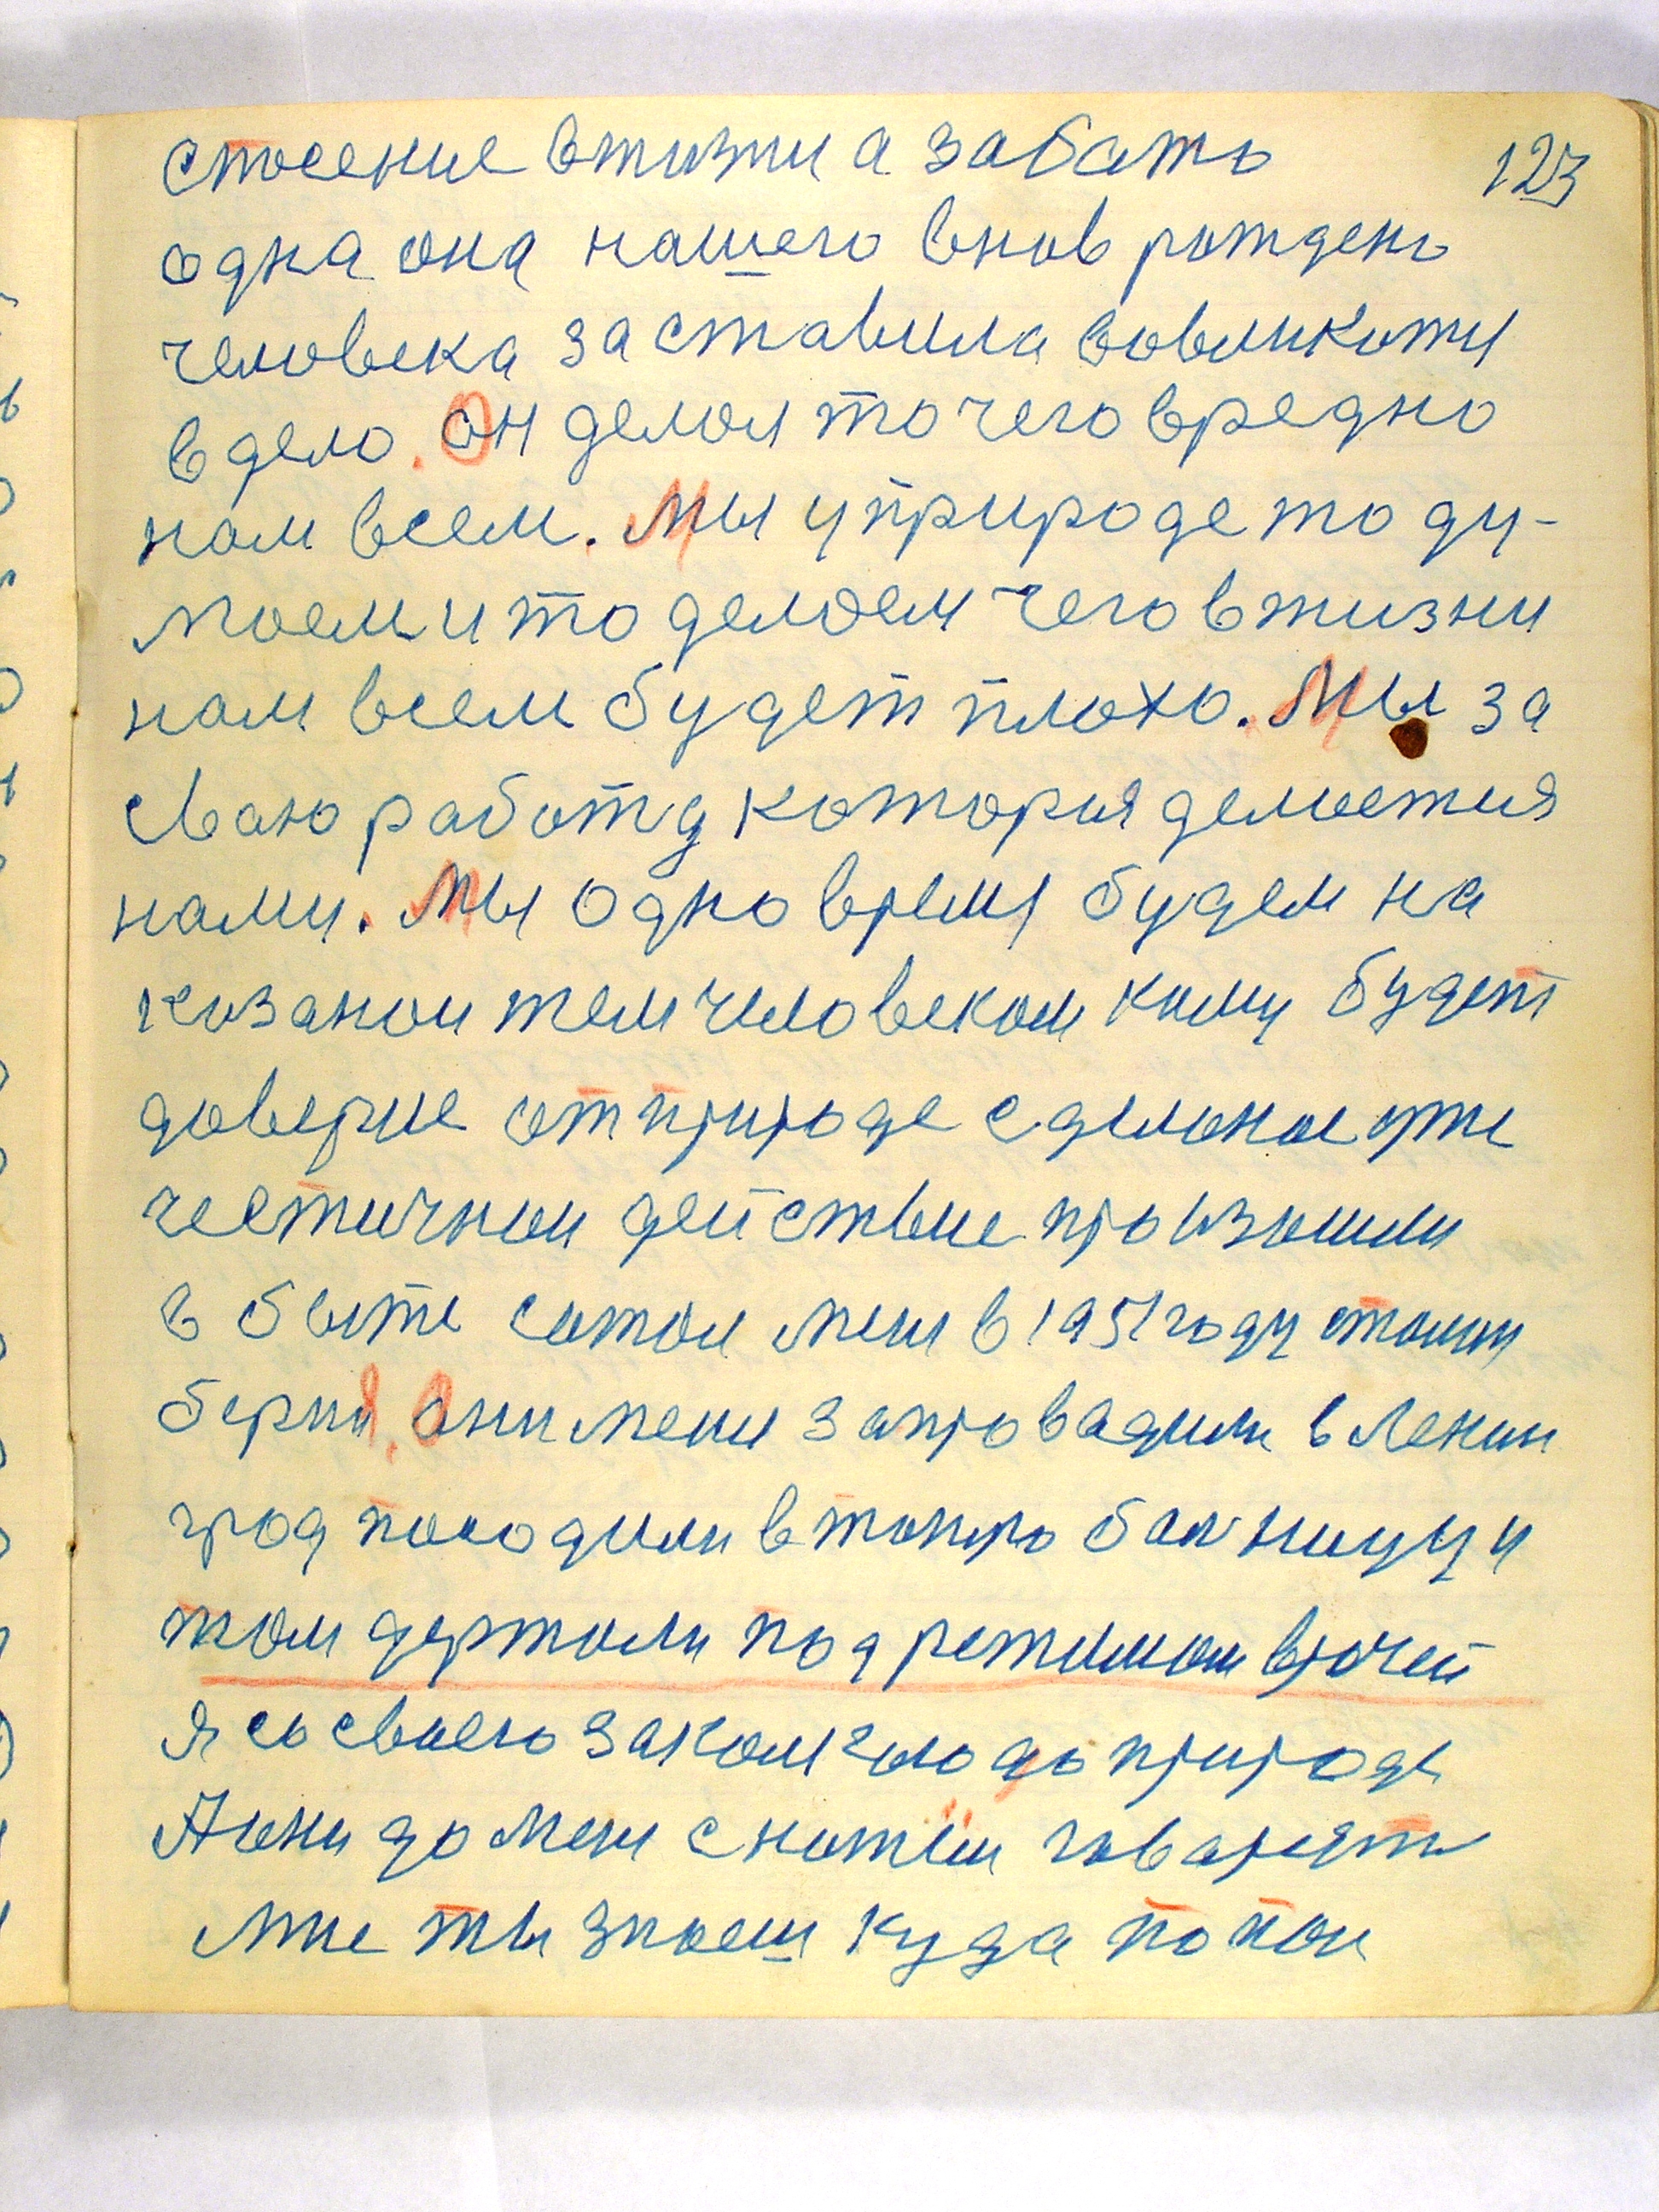 123
спосение в жизни а забать
одна она нашего внов рождено
человека заставила вовликати
в дело. Он делол то чего вредно
нам всем. Мы у природе то ду-
моем и то делоем чего в жизни
нам всем будет плохо. Мы за
сваю работу котория делоетия
нами. Мы одно время будем на
козанои тем человеком кому будет
доверие от природе сделоное уже
честичнои действие произошли
в быте сотои мени в 1951 году
берия. Они мени запровадили в Ленин
град посодили в тюрмо болницу и
там держоли под режимом врочей
я со своего закони гоо до природе
А они до мени с нотыи говарят
мне ты знаеш куда попои